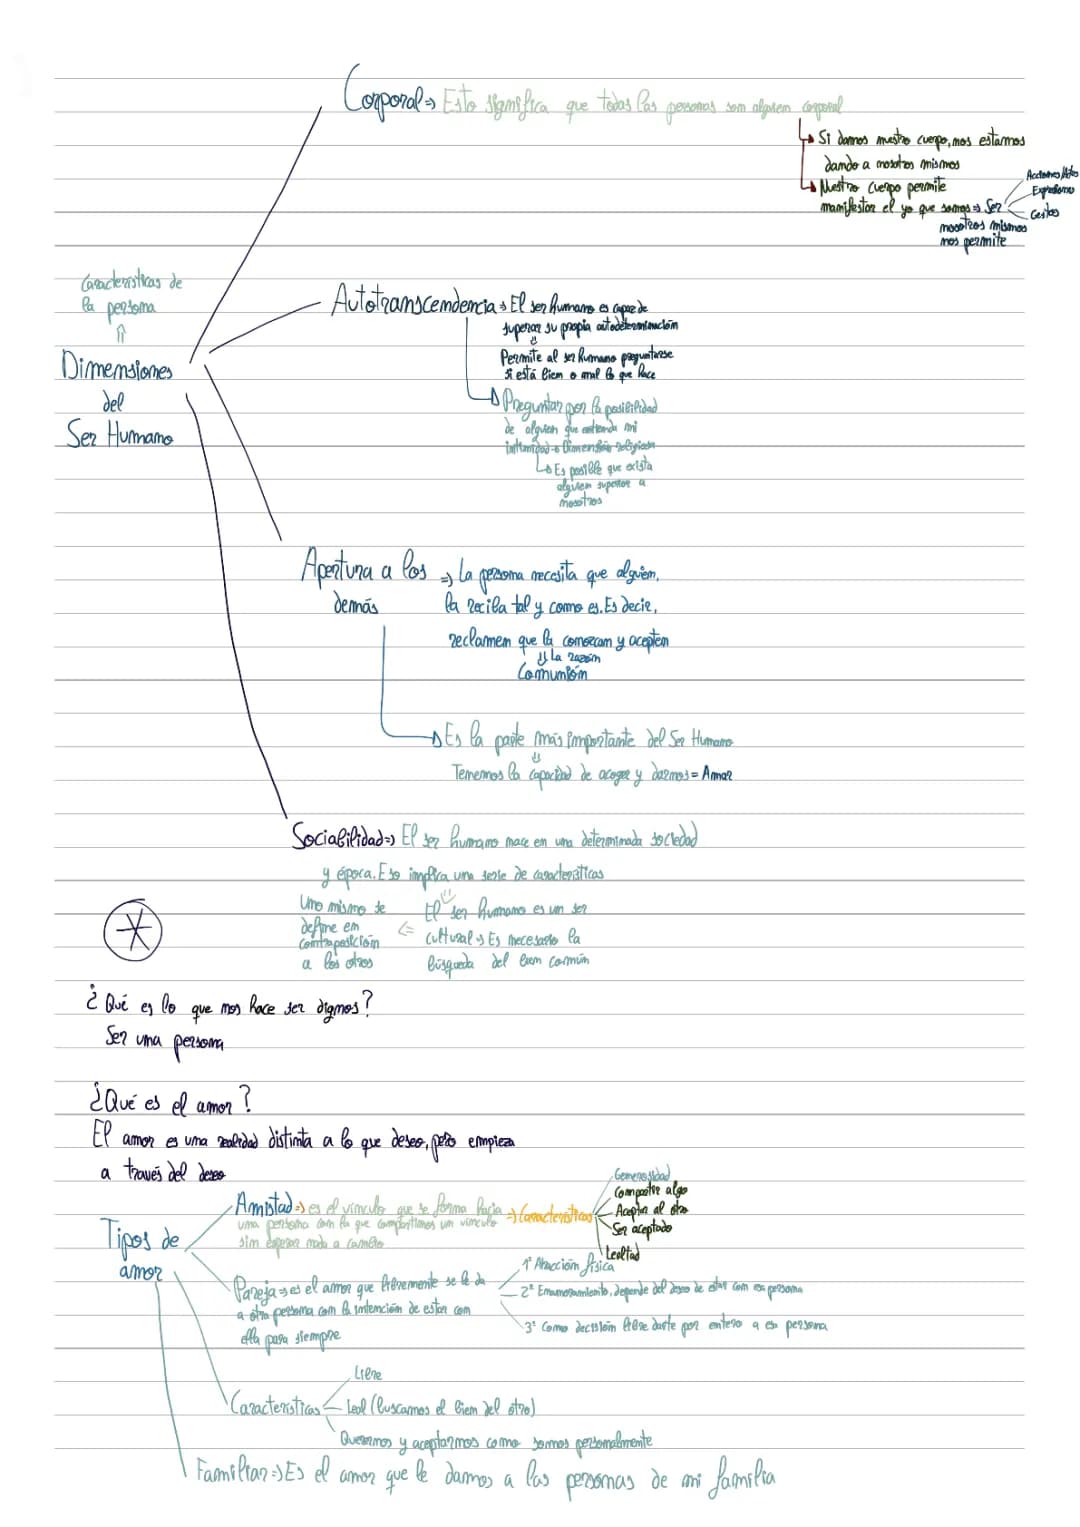 Corporal => Esto significa que todas las personas son alguien corporal
Si damos nuestro cuerpo, nos estamos
dando a nosotros mismos
Nuestro cuerpo permite
manifestar el yo que somos => Ser
nosotros mismos
nos permite
Acciones/Actos
Expresiones
Gestos
Características de
la persona
Dimensiones
del
Ser Humano
Autotranscendencia => El ser humano es capaz de
superar su propia autodeterminación
Permite al ser humano preguntarse
si está bien o mal lo que hace
Preguntar por la posibilidad
de alguien que entienda mi
intimidad => Dimensión religiosa
Es posible que exista
alguien superior a
nosotros
Apertura a los
demás
=> La persona necesita que alguien,
la reciba tal y como es. Es decir,
reclamen que la conozcan y acepten
La razón
Comunión
Es la parte más importante del Ser Humano
Tenemos la capacidad de acoger y darnos = Amar
Sociabilidad => El ser humano nace en una determinada sociedad
y época. Eso implica una serie de características
El ser humano es un ser
cultural => Es necesario la
búsqueda del bien común
Uno mismo se
define en
contraposición
a los otros
¿Qué es lo que nos hace ser dignos?
Ser una persona
¿Qué es el amor?
El amor es una realidad distinta a lo que deseo, pero empieza
a través del deseo
Tipos de
amor
Amistad => es el vínculo que se forma hacia
una persona con la que compartimos un vínculo
sin esperar nada a cambio
=> Características
Generosidad
Compartir algo
Aceptar al otro
Ser aceptado
Lealtad
Pareja => es el amor que libremente se le da
a otra persona con la intención de estar con
ella para siempre
1º Atracción física
2º Enamoramiento, depende del deseo de estar con esa persona
3º Como decisión libre darte por entero a esa persona
Características
Libre
Leal (buscamos el bien del otro)
Querernos y aceptarnos como somos personalmente
Familiar => Es el amor que le damos a las personas de mi familia